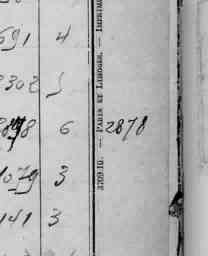 691 4
2302 5
2898 6 2878
1079 3
141 3
3709.10. — PARIS ET LIMOGES. — IMPRIM